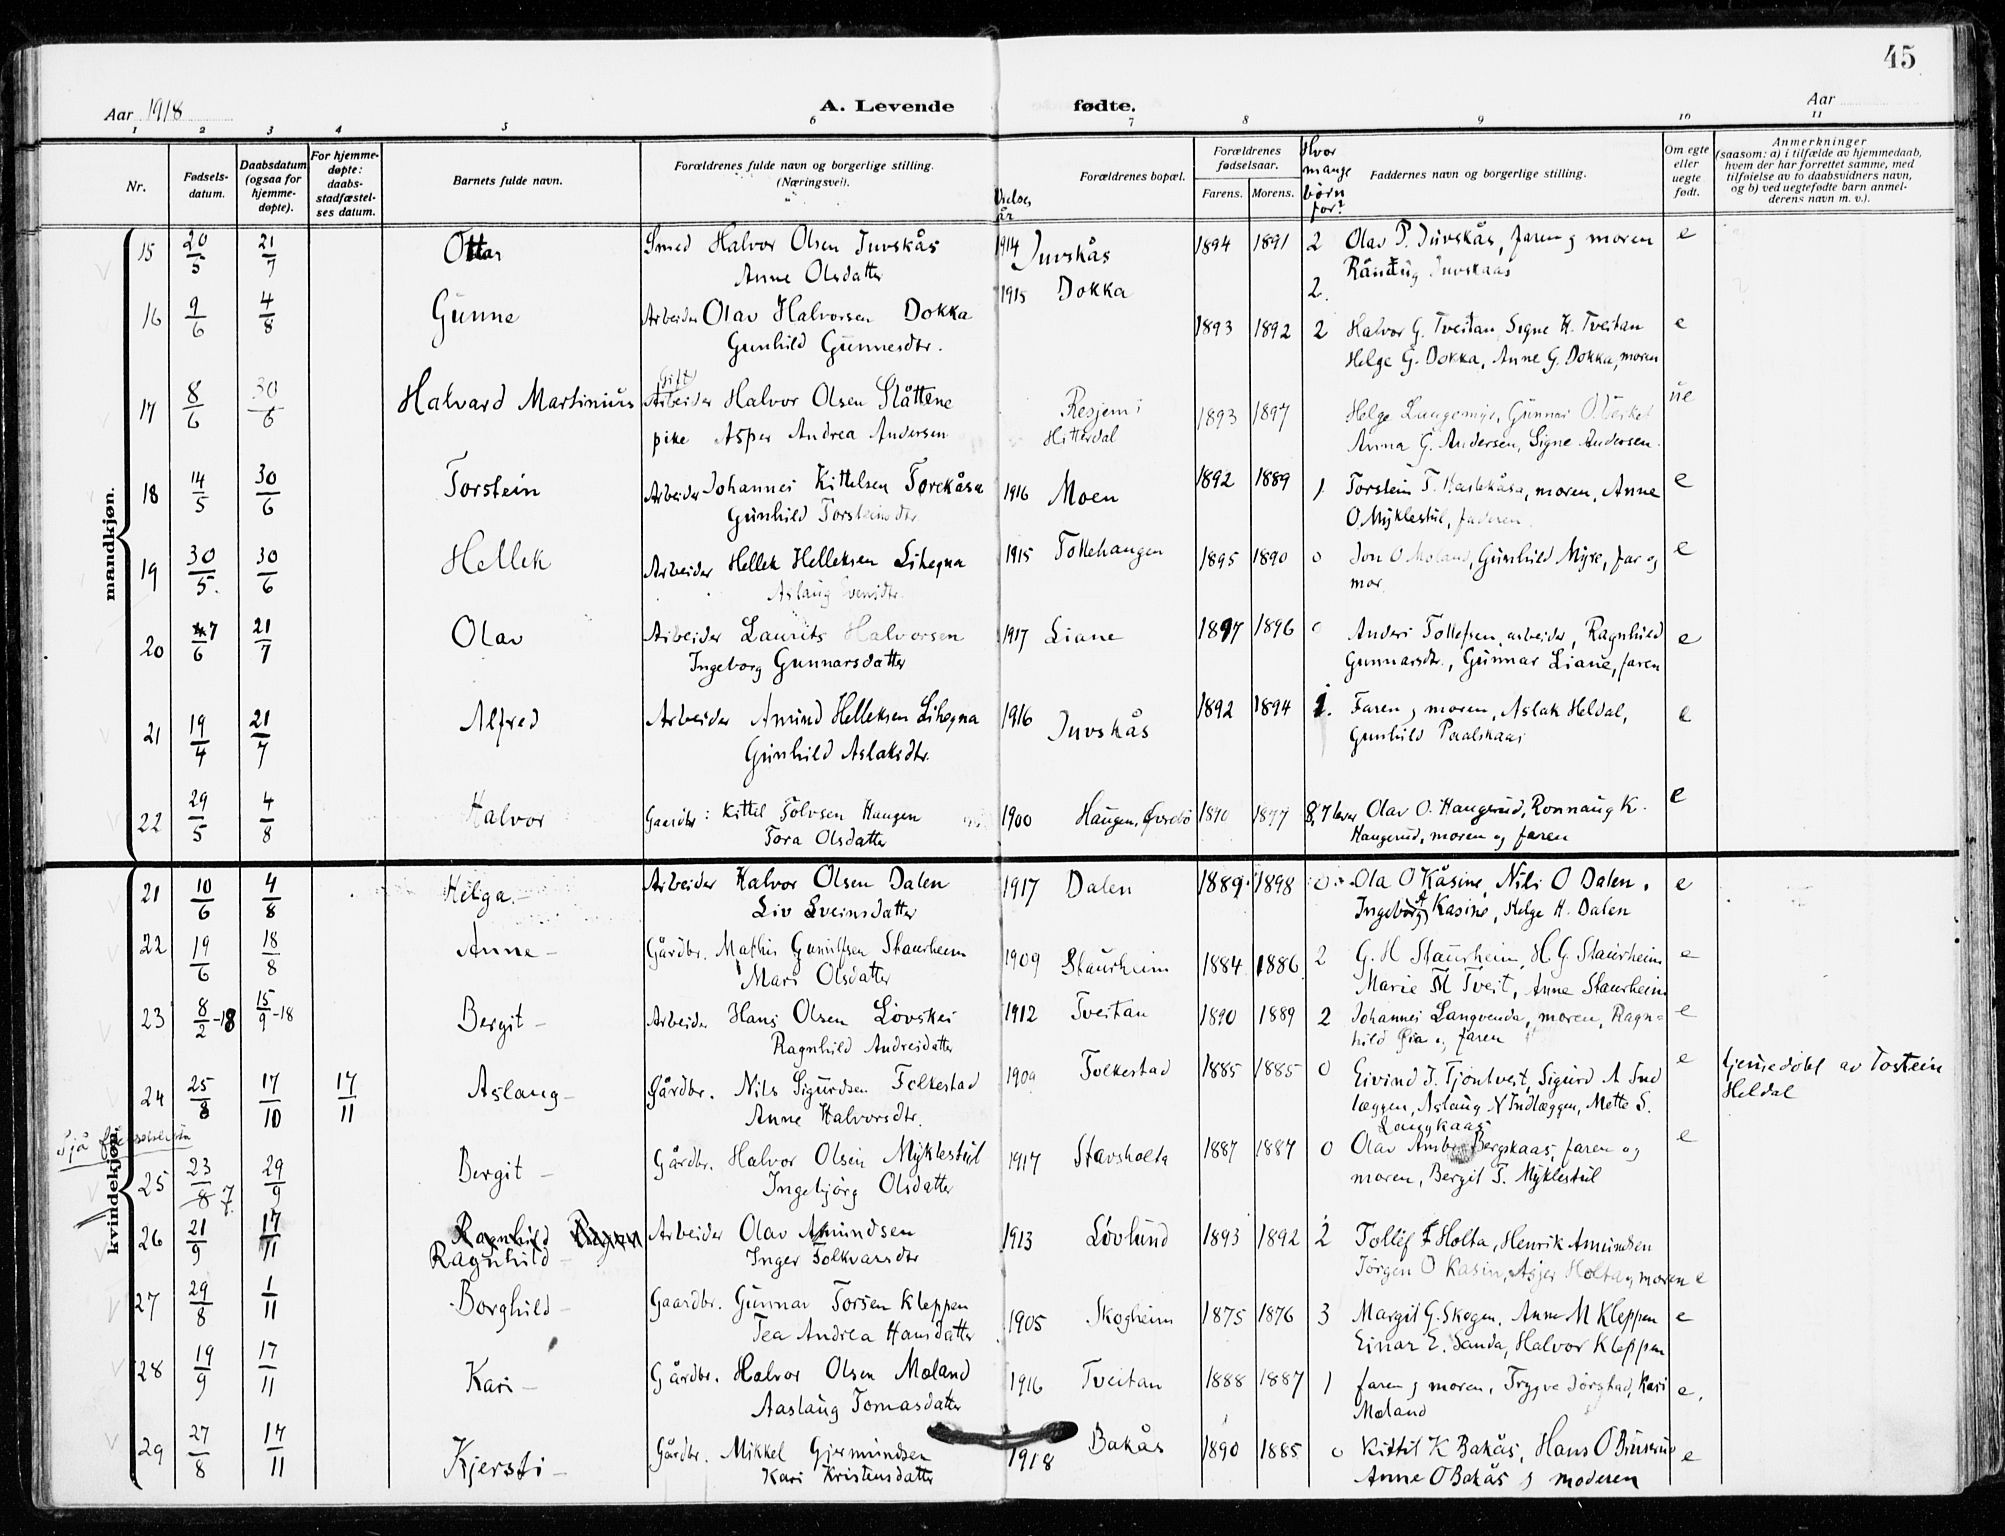 45
Aar 1918 A. Levende fødte. Aar
1 2 3 4 5 6 7 8 9 10 11
Nr. Fødsels-datum. Daabsdatum (ogsaa for hjemme-døpte). For hjemme-døpte: daabs-stadfæstel-ses datum. Barnets fulde navn. Forældrenes fulde navn og borgerlige stilling. (Næringsvei). Vielses år Forældrenes bopæl. Forældrenes fødselsaar. Farens. Morens. Hvor mange børn før? Faddernes navn og borgerlige stilling. Om egte eller uegte født. Anmerkninger (saasom: a) i tilfælde av hjemmedaab, hvem der har forrettet samme, med tilføielse av to daabsvidners navn, og b) ved uegtefødte barn anmel-derens navn m. v.).
mandkjøn.
15 20/5 21/7 Ottar Smed Halvor Olsen Juvskås 1914 Juvskås 1894 1891 2 Olav P. Juvskås, faren og moren e
Anne Olsdatter Juvskaas
16 9/6 4/8 Gunne Arbeider Olav Halvorsen Dokka 1915 Dokka 2.
1893 1892 2 Halvor G. Tveitan, Signe H. Tveitan e
Gunhild Gunnesdtr. Helge G. Dokka, Anne G. Dokka, moren
17 8/6 30/6 Halvard Martinius Gift Arbeider Halvor Olsen Slåttene 1893 1897 Helge Langemyr, Gunnar ue
pike Asper Andrea Andersen Hitterdal Anna G. Andersen, Signe Andersen.
18 14/5 30/6 Torstein Arbeider Johannes Kittelsen 1916 Moen 1892 1889 1 Torstein T. moren, Anne e
Gunhild Torsteinsdtr O. Myklestul, faderen
19 30/5. 30/6 Hellek Arbeider Hellek Helleksen Lihegna 1915 Tollehaugen 1895 1890 0 Jon O Moland, Gunhild Myre, far og e
Aslaug mor
20 21/7 Olav Arbeider Laurits Halvorsen 1917 Liane 1897 1896 0 Anders Tollefsen, arbeider, Ragnhild e
Ingeborg Gunnarsdatter Gunnarsdtr., Gunnar Liane, faren
21 19/4 21/7 Alfred Arbeider Amund Helleksen Lihegna 1916 Juvskås 1892 1894 1. Faren og moren, Aslak Heldal, e
Gunhild Aslaksdtr. Gunhild Paalskaas
22 29/5 4/8 Halvor Gaardbr: Kittel Tolvsen Haugen 1900 Haugen, 1870 1877 8, 7 lever Olav O. Haugerud, Ronnaug K. e
Tora Olsdatter Haugerud, moren og faren
kvindekjøn.
21 10/6 4/8 Helga Arbeider Halvor Olsen Dalen 1917 Dalen 1889 1898 0 Ola O Kåsine, Nils O Dalen, e
Liv Sveinsdatter Ingeborg Kasine, Helge H. Dalen
22 19/6 18/8 Anne Gårdbr. Mathis Gunulfsen Staurheim 1909 Staurheim 1884 1886 2 G. H Staurheim, H. G. Staurheim e
Mari Olsdatter Marie M Tveit, Anne Staurheim
23 8/2-18 15/9-18 Bergit Arbeider Hans Olsen Løvskei 1912 Tveitan 1890 1889 2 Johannes Langvenda, moren, Ragn- e
Ragnhild Andresdatter hild Øia og faren
24 25/8 17/10 17/11 Aslaug Gårdbr. Nils Sigurdsen Folkestad 1909 Folkestad 1885 1885 0 Eivind J. Tjøntveit, Sigurd A Ind e hjemmedøbt av Tostein
Anne Halvorsdtr. læggen, Aslaug N Indlæggen, Mette S. Heldal
Langkaas
Sjå
25 23/8 7 29/9 Bergit Gårdbr. Halvor Olsen Myklestul 1917 Stavsholta 1887 1887 0 Olav Bergskaas, faren og e
Ingebjørg Olsdatter moren, Bergit T. Myklestul
26 21/9 17/11 Ragnhild Arbeider Olav Amundsen 1913 Løvlund 1893 1892 2 Tollef Holta, Henrik Amundsen
Ragnhild Inger Folkvarsdtr Jørgen O Kasin, Asjer Holta og moren e
27 29/8 1/11 Borghild Gaardbr. Gunnar Torsen Kleppen 1905 Skogheim 1875 1876 3 Margit G. Skogen, Anne M Kleppen e
Tea Andrea Hansdatter Einar E. Sanda, Halvor Kleppen
28 19/9 17/11 Kari Gårdbr. Halvor Olsen Moland 1916 Tveitan 1888 1887 1 faren og moren, Trygve Jørgstad, Kari e.
Aaslaug Tomasdatter Moland
29 27/8 17/11 Kjersti Gårdbr. Mikkel Gjermundsen 1918 Bakås 1890 1885 0 Kittil K Bakås, Hans O e
Kari Kristensdatter Anne O Bakås og moderen